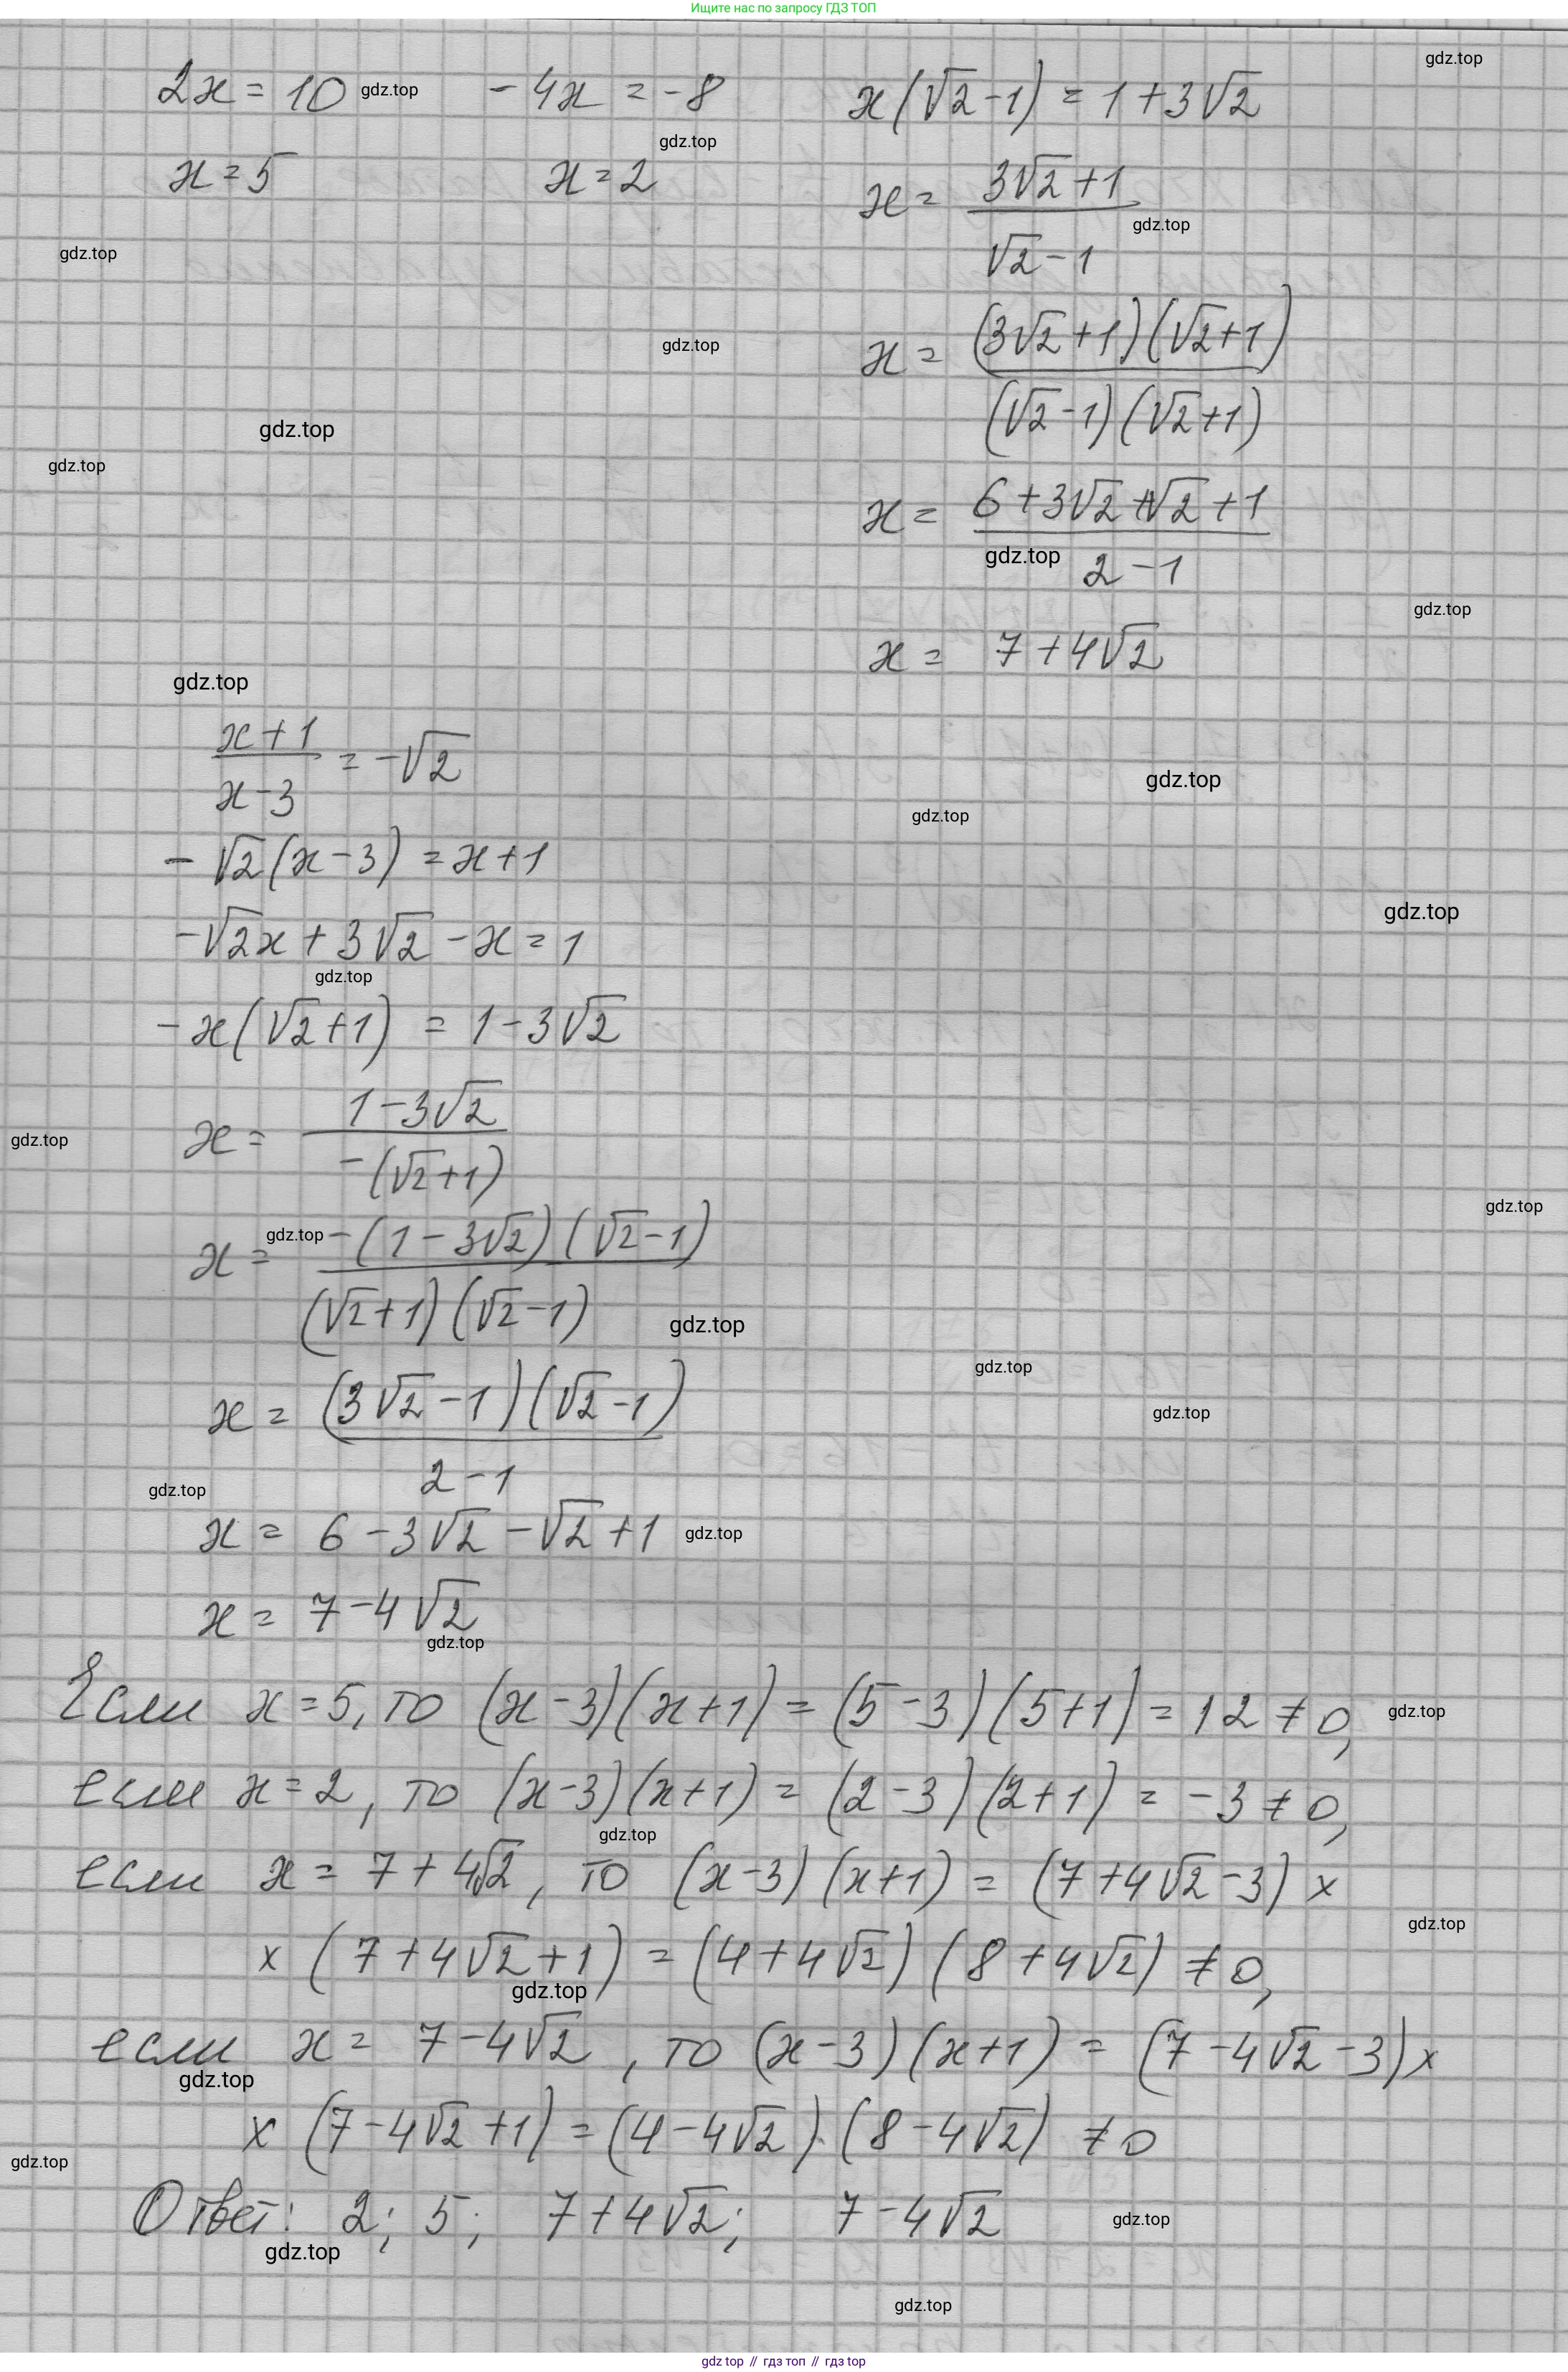 Ищите нас по запросу ГДЗ ТОП
gdz.top
2x = 10 gdz.top -4x = -8 x(√2-1) = 1+3√2
gdz.top
x = 5 x = 2 x = (3√2+1)/(√2-1)
gdz.top
gdz.top
gdz.top
x = ((3√2+1)(√2+1))/((√2-1)(√2+1))
gdz.top
gdz.top
x = (6+3√2+√2+1)/(2-1)
gdz.top
gdz.top
x = 7+4√2
gdz.top
(x+1)/(x-3) = -√2
gdz.top
gdz.top
-√2(x-3) = x+1
gdz.top
-√2x + 3√2 - x = 1
gdz.top
-x(√2+1) = 1-3√2
x = (1-3√2)/(-(√2+1))
gdz.top
gdz.top
x = gdz.top (-(1-3√2)(√2-1))/((√2+1)(√2-1))
gdz.top
gdz.top
x = ((3√2-1)(√2-1))/(2-1)
gdz.top
gdz.top
x = 6-3√2-√2+1 gdz.top
x = 7-4√2
gdz.top
Если x=5, то (x-3)(x+1) = (5-3)(5+1) = 12 ≠ 0, gdz.top
если x=2, то (x-3)(x+1) = (2-3)(2+1) = -3 ≠ 0,
gdz.top
если x = 7+4√2, то (x-3)(x+1) = (7+4√2-3) ×
gdz.top
× (7+4√2+1) = (4+4√2)(8+4√2) ≠ 0,
gdz.top
если x = 7-4√2, то (x-3)(x+1) = (7-4√2-3) ×
gdz.top
× (7-4√2+1) = (4-4√2)·(8-4√2) ≠ 0
gdz.top
Ответ: 2; 5; 7+4√2; 7-4√2 gdz.top
gdz.top
gdz.top
gdz top // гдз топ // гдз top